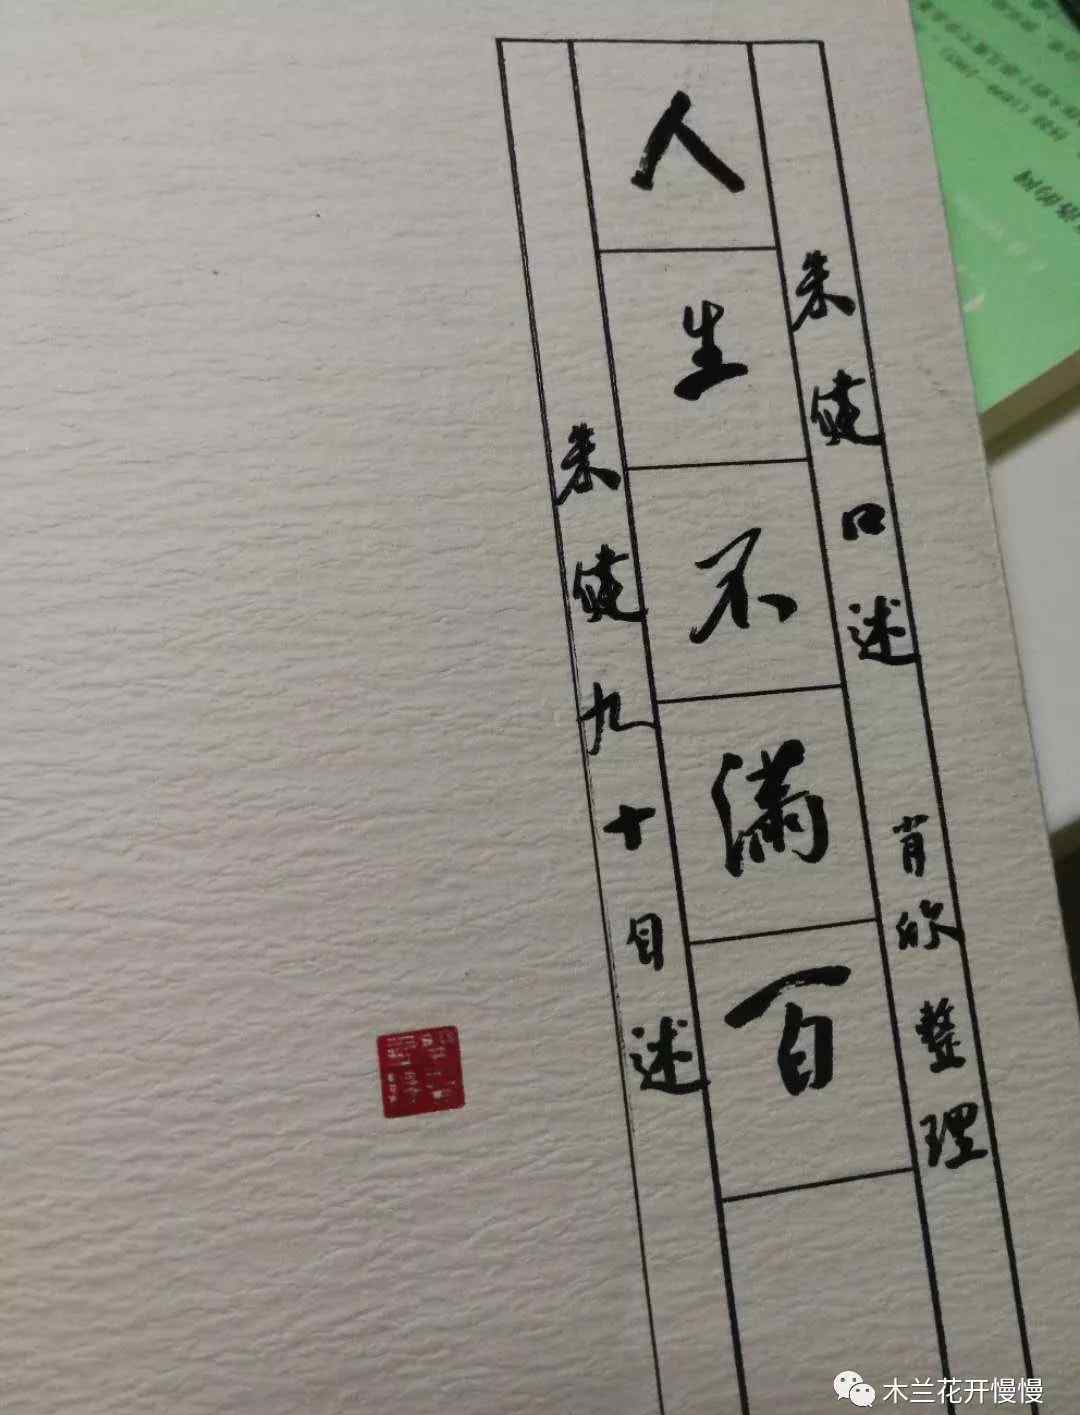 朱健口述 肖欣整理
人生不满百
朱健九十自述
木兰花开慢慢